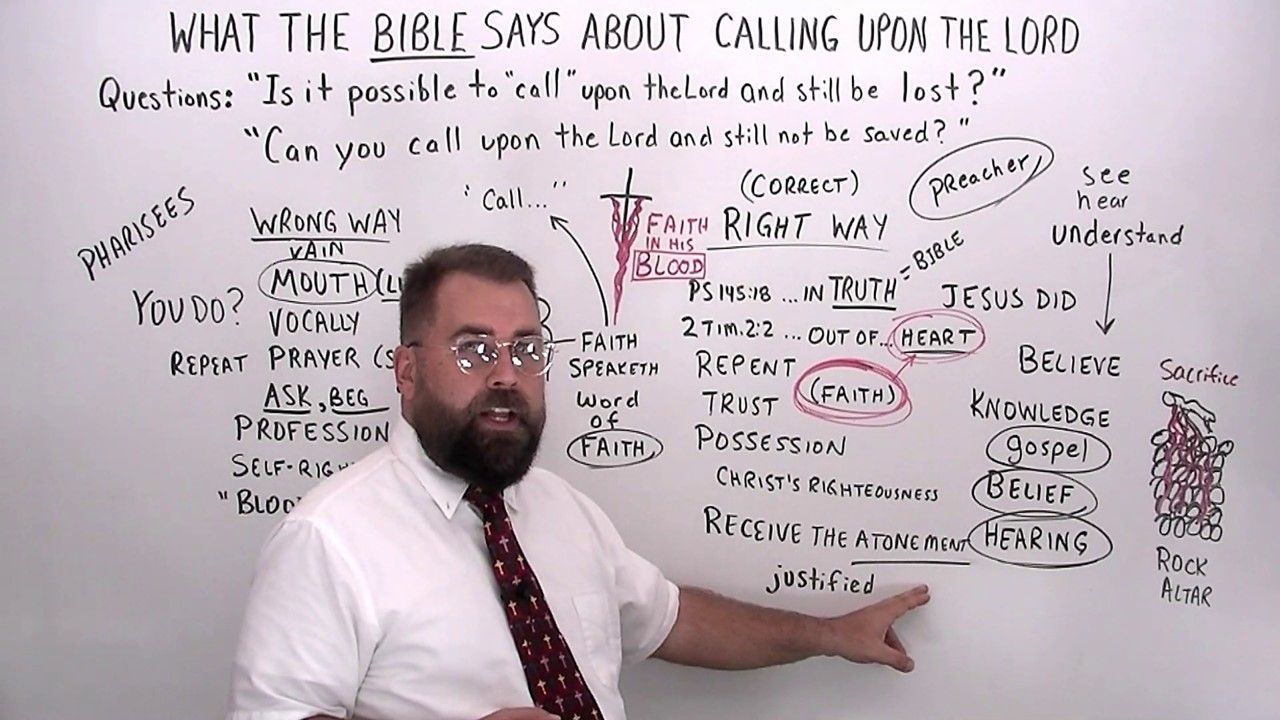 WHAT THE BIBLE SAYS ABOUT CALLING UPON THE LORD
Questions: "Is it possible to "call" upon the Lord and still be lost?"
"Can you call upon the Lord and still not be saved?"
PHARISEES
WRONG WAY
VAIN
MOUTH
YOU DO?
VOCALLY
REPEAT PRAYER (S
ASK, BEG
PROFESSION
"Call..."
FAITH
IN HIS
BLOOD
FAITH
SPEAKETH
Word
of
FAITH
(CORRECT)
RIGHT WAY
PS 145:18 ... IN TRUTH = BIBLE
2 Tim. 2:2 ... OUT OF... HEART
REPENT
TRUST (FAITH)
POSSESSION
CHRIST'S RIGHTEOUSNESS
RECEIVE THE ATONEMENT
justified
preacher
see
hear
understand
JESUS DID
BELIEVE
KNOWLEDGE
gospel
BELIEF
HEARING
Sacrifice
ROCK
ALTAR